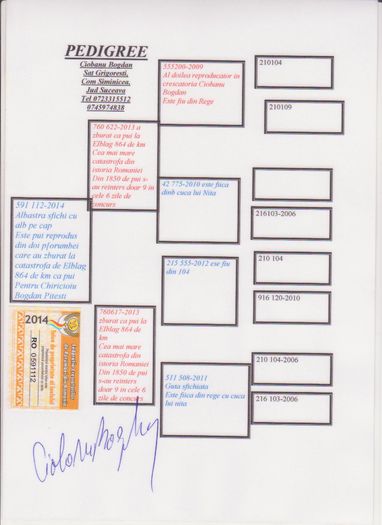 PEDIGREE
Ciobanu Bogdan
Sat Grigoresti,
Com Siminicea,
Jud Suceava
Tel 0723315512
0745974838
591 112-2014
Albastra sfichi cu
alb pe cap
Este put reprodus
din doi pforumbei
care au zburat la
catastrofa de Elblag
864 de km ca pui
Pentru Chiricioiu
Bogdan Pitesti
760 622-2013 a
zburat ca pui la
Elblag 864 de km
Cea mai mare
catastrofa din
istoria Romaniei
Din 1850 de pui s-
au reinters doar 9 in
cele 6 zile de
concurs
760617-2013
zburat ca pui la
Elblag 864 de
km
Cea mai mare
catastrofa din
istoria Romaniei
Din 1850 de pui
s-au reinters
doar 9 in cele 6
zile de concurs
555200-2009
Al doilea reproducator in
crescatoria Ciobanu
Bogdan
Este fiu din Rege
42 775-2010 este fiica
dinb cuca lui Nita
215 555-2012 ese fiu
din 104
511 508-2011
Guta sfichiata
Este fiica din rege cu cuca
lui nita
210104
210109
216103-2006
210 104
916 120-2010
210 104-2006
216 103-2006
2014
RO 0591112